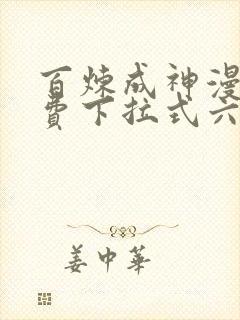 百炼成神漫
费下拉式六
姜中华